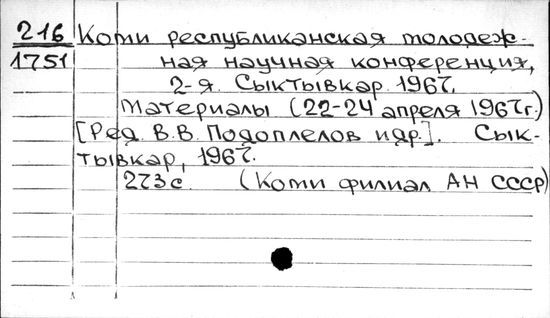 216 Коми республиканская молодеж-
1751 ная научная конференция,
2-я. Сыктывкар. 1967.
Материалы (22-24 апреля 1967г.)
[Ред. В.В. Подоплелов и др.]. Сык-
тывкар, 1967.
273 с. (Коми филиал АН СССР)